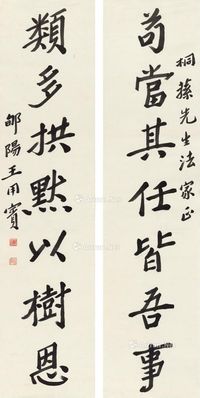 桐荪先生法家正
苟當其任皆吾事
類多拱默以樹恩
郃陽王用賓